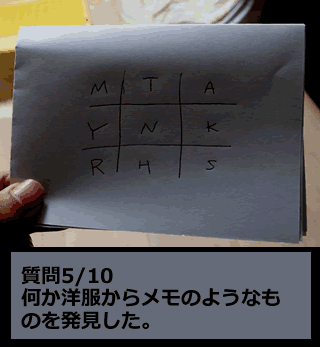 M T A
Y N K
R H S
質問5/10
何か洋服からメモのようなも
のを発見した。